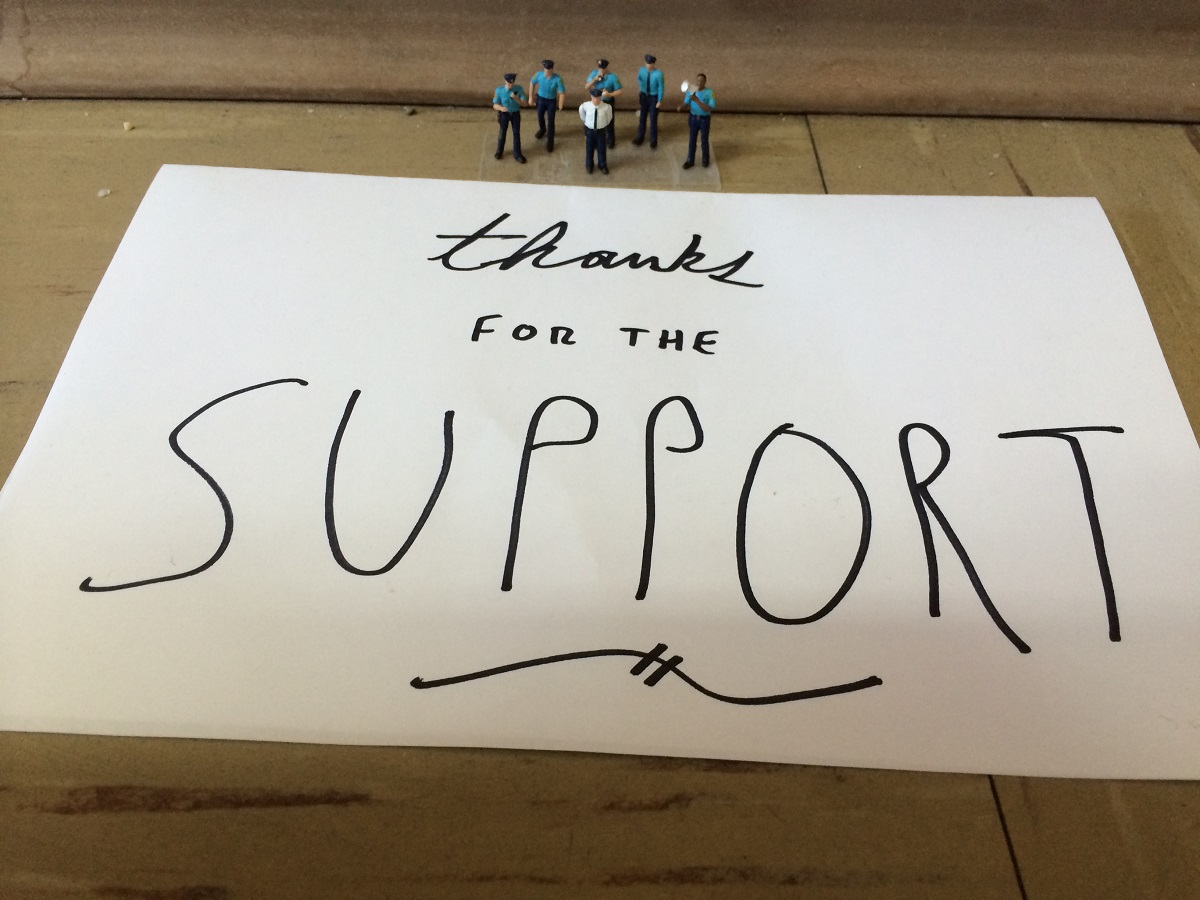 thanks
FOR THE
SUPPORT